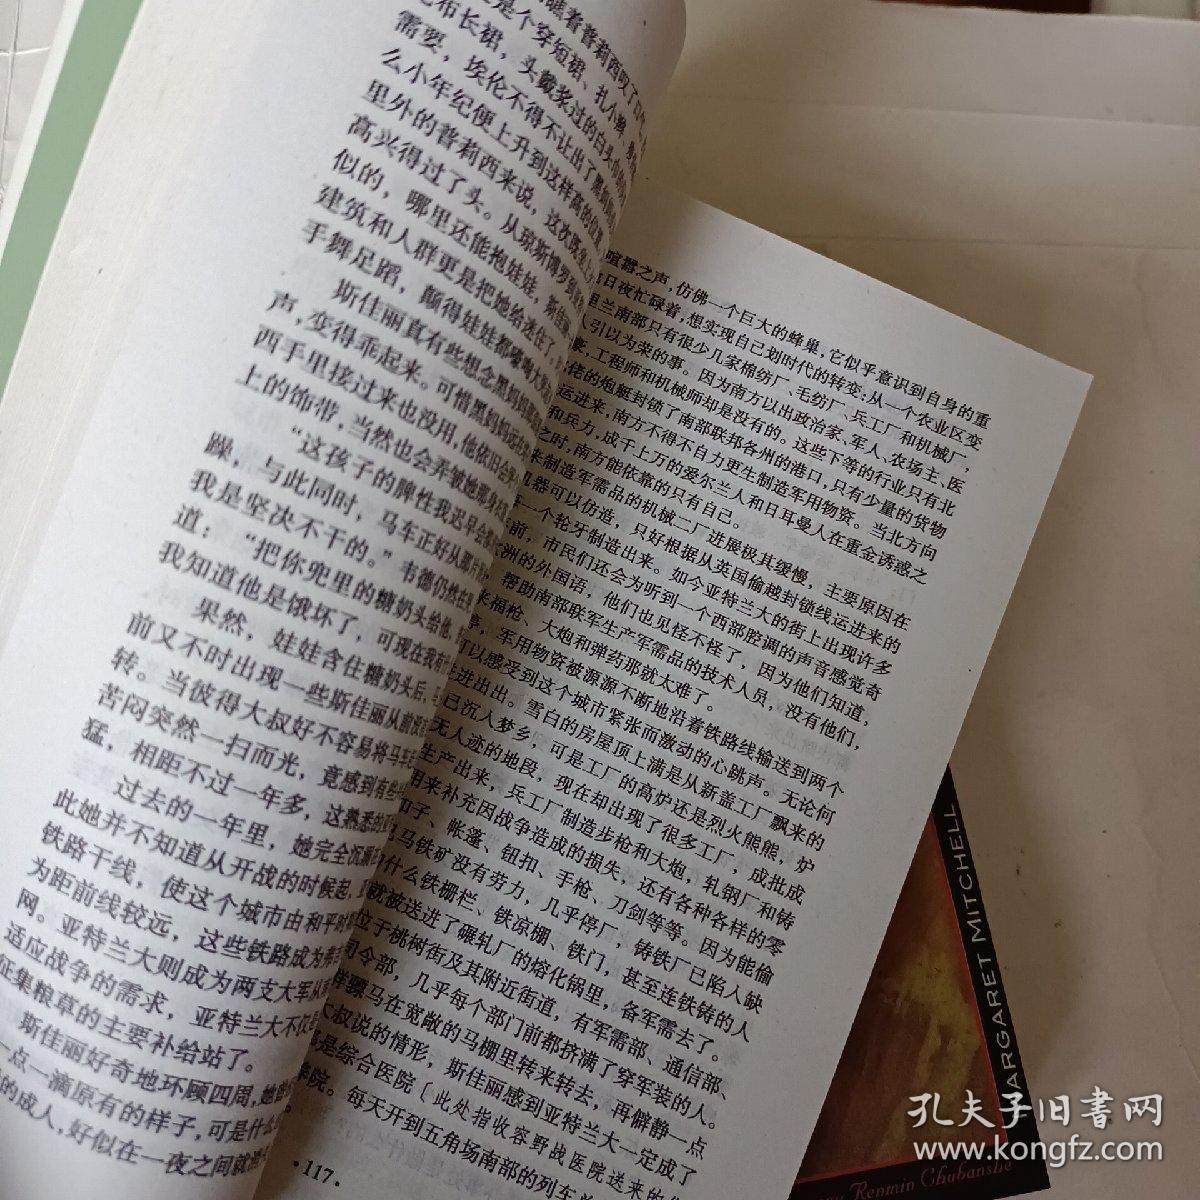 碰着普莉西叹了
是个穿短裙、扎小辫、身
布长裙，头戴浆过的白头巾的
需要，埃伦不得不让出了黑
么小年纪便上升到这样高的位置
里外的普莉西来说，这次
高兴得过了头。从琼斯博罗到
似的，哪里还能抱娃娃，斯佳丽
建筑和人群更是把她给迷住了。
手舞足蹈，颠得娃娃都嚎啕大
斯佳丽真有些想念黑妈妈那
声，变得乖起来。可惜黑妈妈远在
西手里接过来也没用，他依旧会
上的饰带，当然也会弄皱她那身
“这孩子的脾性我迟早会
躁，与此同时，马车正好从那
我是坚决不干的。”韦德仍然在
道：“把你兜里的糖奶头给他，
我知道他是饿坏了，可现在我有什
果然，娃娃含住糖奶头后，
前又不时出现一些斯佳丽从前没
转。当彼得大叔好不容易将马车
苦闷突然一扫而光，竟感到有些
猛，相距不过一年多，这熟悉的
过去的一年里，她完全沉溺
此她并不知道从开战的时候起，
铁路干线，使这个城市由和平时
为距前线较远，这些铁路成为
网。亚特兰大则成为两支大军从
适应战争的需求，亚特兰大不仅
征集粮草的主要补给站了。
斯佳丽好奇地环顾四周，她曾
一点一滴原有的样子，可是什么
的成人，好似在一夜之间就
喧嚣之声，仿佛一个巨大的蜂巢，它似乎意识到自身的重
日夜忙碌着，想实现自己划时代的转变：从一个农业区变
里兰南部只有很少几家棉纺厂、毛纺厂、兵工厂和机械厂，
人引以为荣的事。因为南方以出政治家、军人、农场主、医
豪，工程师和机械师却是没有的。这些下等的行业只有北
佬的炮艇封锁了南部联邦各州的港口，只有少量的货物
运进来，南方不得不自力更生制造军用物资。当北方向
和兵力，成千上万的爱尔兰人和日耳曼人在重金诱惑之
之时，南方能依靠的只有自己。
来制造军需品的机械二厂进展极其缓慢，主要原因在
机器可以仿造，只好根据从英国偷越封锁线运进来的
一个轮牙制造出来。如今亚特兰大的街上出现许多
前，市民们还会为听到一个西部腔调的声音感觉奇
洲的外国语，他们也见怪不怪了，因为他们知道，
，帮助南部联军生产军需品的技术人员，没有他们，
来福枪、大炮和弹药那就太难了。
，军用物资被源源不断地沿着铁路线输送到两个
可以感受到这个城市紧张而激动的心跳声。无论何
进进出出。雪白的房屋顶上满是从新盖工厂飘来的
已沉入梦乡，可是工厂的高炉还是烈火熊熊，炉
无人迹的地段，现在却出现了很多工厂，成批成
生产出来，兵工厂制造步枪和大炮，轧钢厂和铸
用来补充因战争造成的损失，还有各种各样的零
扣子、帐篷、钮扣、手枪、刀剑等等。因为能偷
马铁矿没有劳力，几乎停厂，铸铁厂已陷入缺
什么铁栅栏、铁凉棚、铁门，甚至连铁铸的人
就被送进了碾轧厂的熔化锅里，备军需去了。
位于桃树街及其附近街道，有军需部、通信部、
司令部，几乎每个部门前都挤满了穿军装的人。
群骡马在宽敞的马棚里转来转去，再僻静一点
大叔说的情形，斯佳丽感到亚特兰大一定成了
是综合医院〔此处指收容野战医院送来的
学院。每天开到五角场南部的列车
·117·
MARGARET MITCHELL
Renmin Chubanshe
孔夫子旧書网
www.kongfz.com